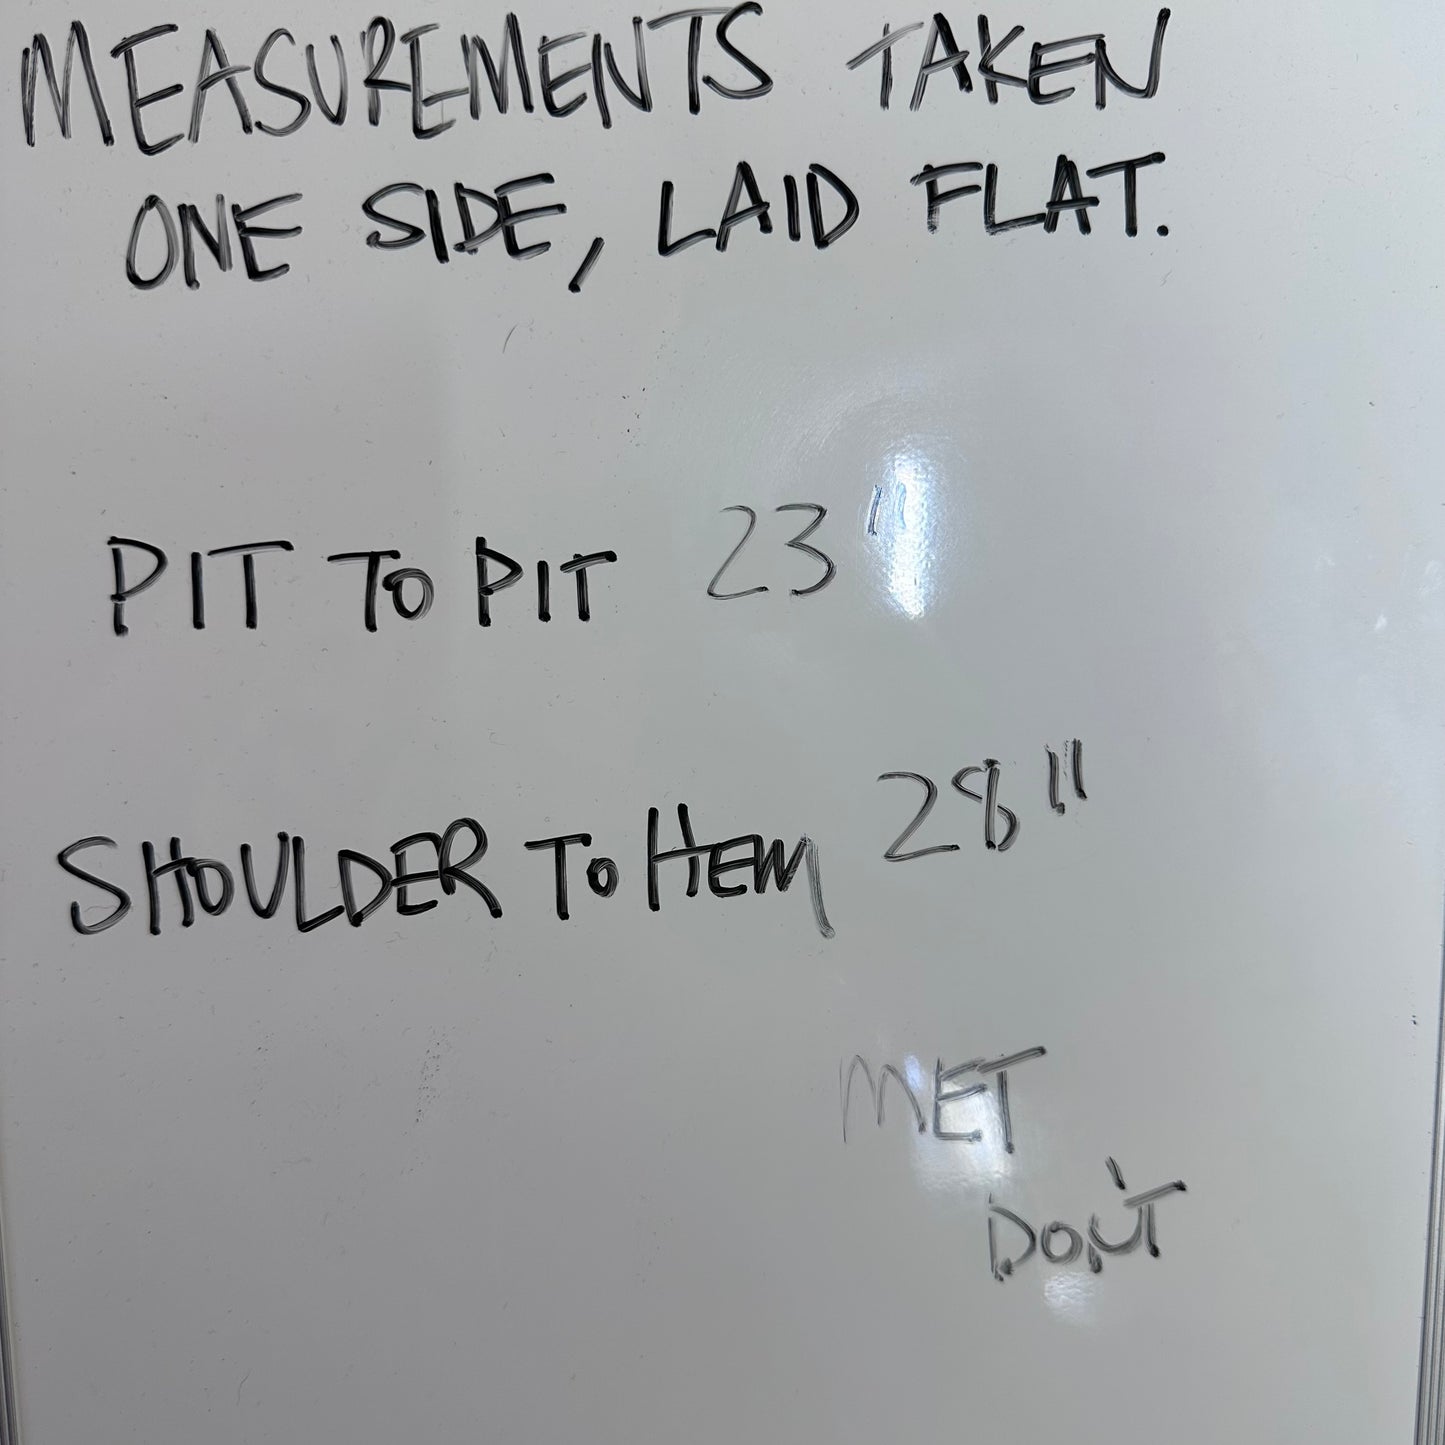 MEASUREMENTS TAKEN
ONE SIDE, LAID FLAT.
PIT TO PIT 23"
SHOULDER TO HEM 28"
MET
DON'T